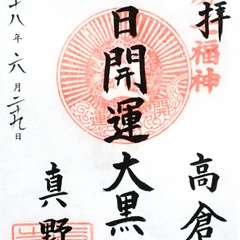 拝
高倉
福神
日開運大黒
真野
十八年六月二十九日